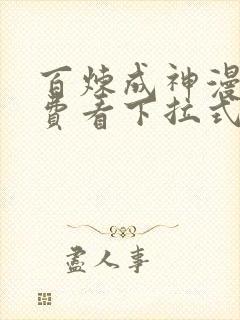 百炼成神漫
费看下拉式
盡人事